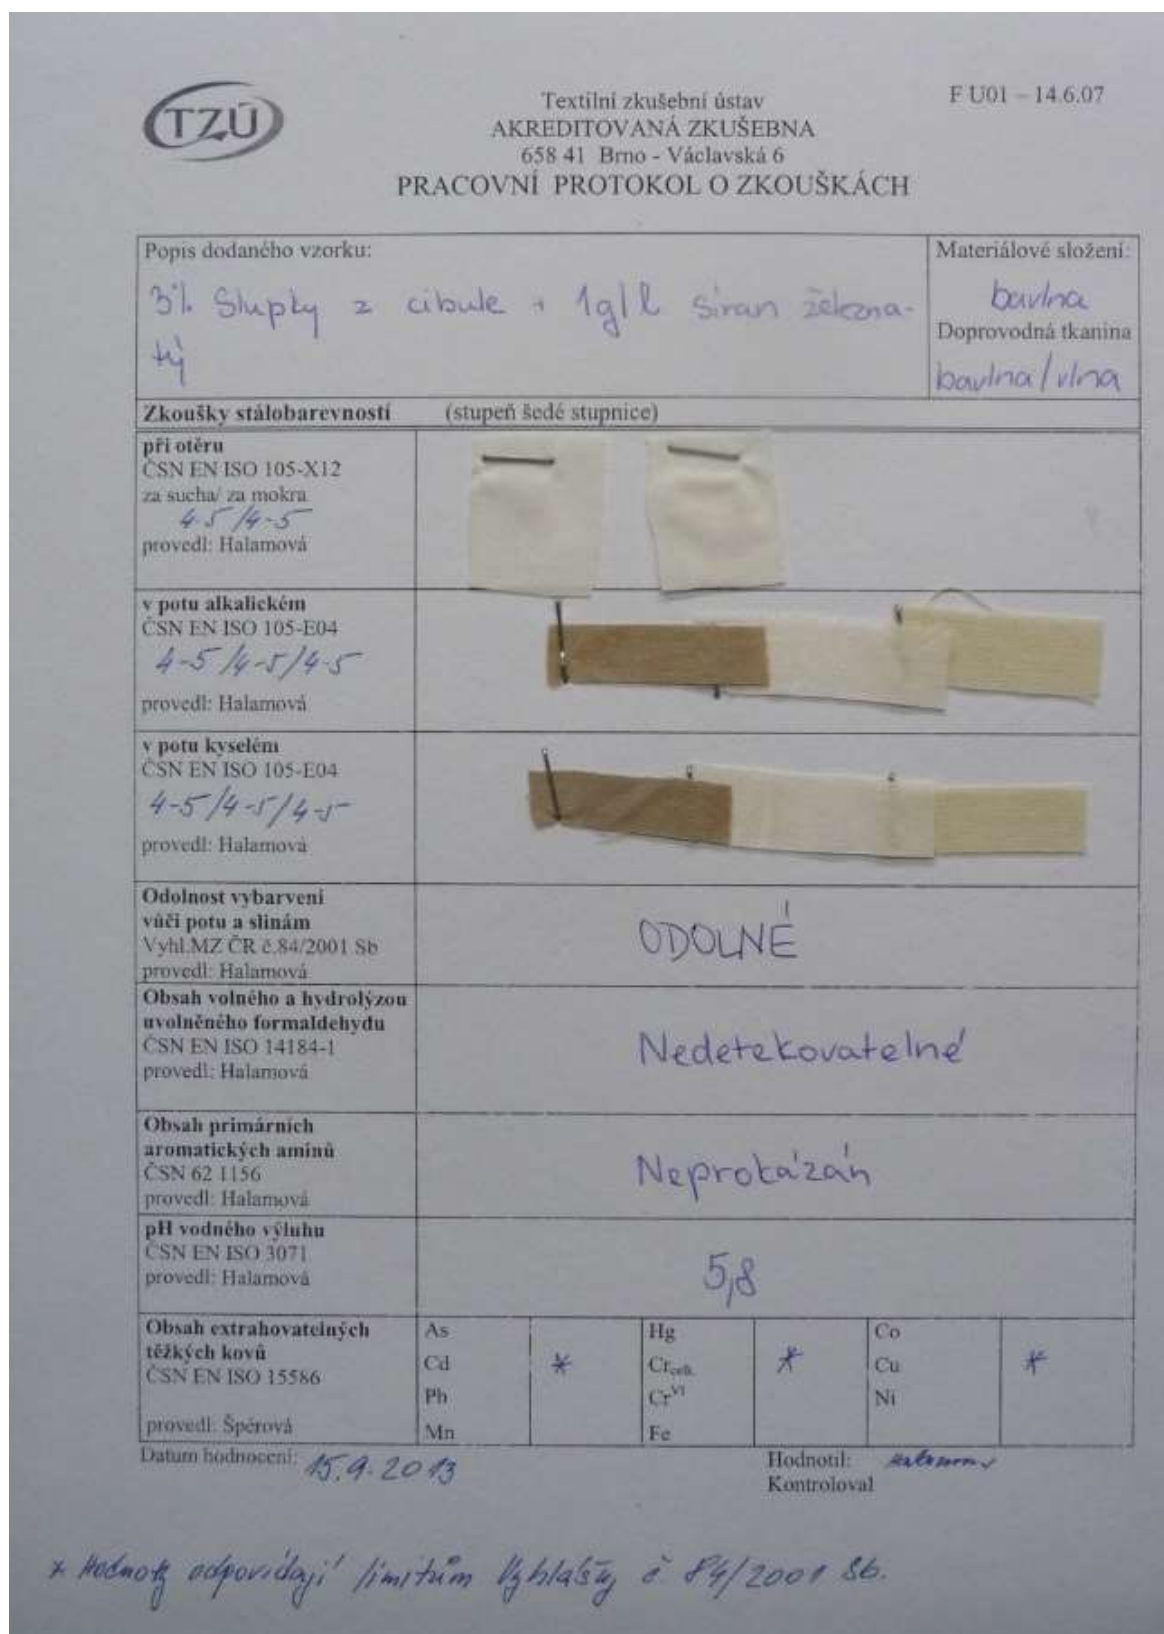 TZÚ
Textilní zkušební ústav
AKREDITOVANÁ ZKUŠEBNA
658 41 Brno - Václavská 6
PRACOVNÍ PROTOKOL O ZKOUŠKÁCH
F U01 – 14.6.07
Popis dodaného vzorku:
3% Slupky z cibule + 1g/l síran železna-
tý
Materiálové složení:
bavlna
Doprovodná tkanina
bavlna/vlna
Zkoušky stálobarevností (stupeň šedé stupnice)
při otěru
ČSN EN ISO 105-X12
za sucha/ za mokra
4-5/4-5
provedl: Halamová
v potu alkalickém
ČSN EN ISO 105-E04
4-5/4-5/4-5
provedl: Halamová
v potu kyselém
ČSN EN ISO 105-E04
4-5/4-5/4-5
provedl: Halamová
Odolnost vybarvení
vůči potu a slinám
Vyhl.MZ ČR č.84/2001 Sb
provedl: Halamová
ODOLNÉ
Obsah volného a hydrolýzou
uvolněného formaldehydu
ČSN EN ISO 14184-1
provedl: Halamová
Nedetekovatelné
Obsah primárních
aromatických aminů
ČSN 62 1156
provedl: Halamová
Neprokázán
pH vodného výluhu
ČSN EN ISO 3071
provedl: Halamová
5,8
Obsah extrahovatelných
těžkých kovů
ČSN EN ISO 15586
provedl: Špérová
As
Cd *
Pb
Mn
Hg
Cr celk. *
Cr VI
Fe
Co
Cu *
Ni
Datum hodnocení: 15.9.2013
Hodnotil: Halamová
Kontroloval
* Hodnoty odpovídají limitům Vyhlášky č. 84/2001 Sb.